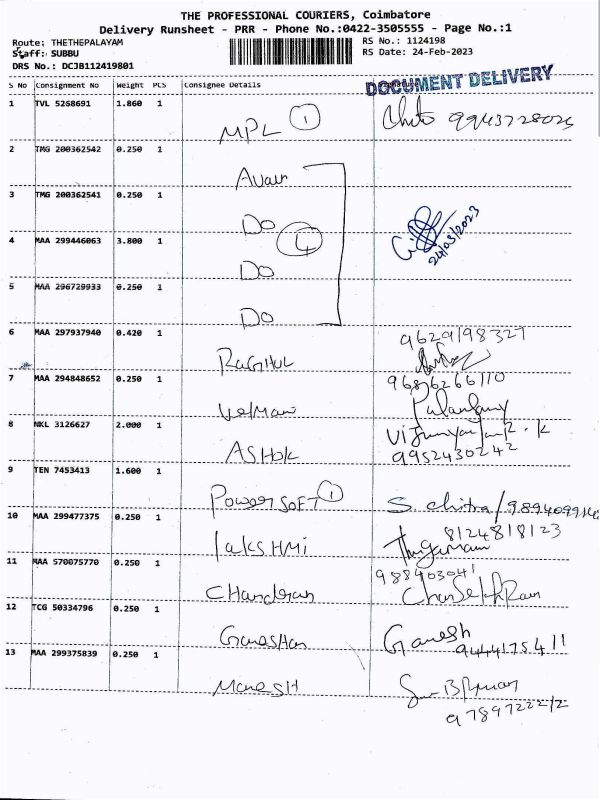 THE PROFESSIONAL COURIERS, Coimbatore
Delivery Runsheet - PRR - Phone No.:0422-3505555 - Page No.:1
Route: THETHEPALAYAM
RS No.: 1124198
Staff: SUBBU
RS Date: 24-Feb-2023
DRS No.: DCJB112419801
DOCUMENT DELIVERY
S No Consignment No Weight PCS Consignee Details
1 TVL 5268691 1.860 1
MPL 1
2 TMG 200362542 0.250 1
3 TMG 200362541 0.250 1
Do
4 MAA 299446063 3.800 1
4
Do
5 MAA 296729933 0.250 1
Do
6 MAA 297937940 0.420 1
9629198327
RAGHUL
7 MAA 294848652 0.250 1
9686266110
8 NKL 3126627 2.000 1
ASHOK
9952430242
9 TEN 7453413 1.600 1
POWERSOFT 1
S. chitra/
10 MAA 299477375 0.250 1
8124818123
LAKSHMI
11 MAA 570075770 0.250 1
988403041
CHandran
12 TCG 50334796 0.250 1
Ganesh
9444175411
13 MAA 299375839 0.250 1